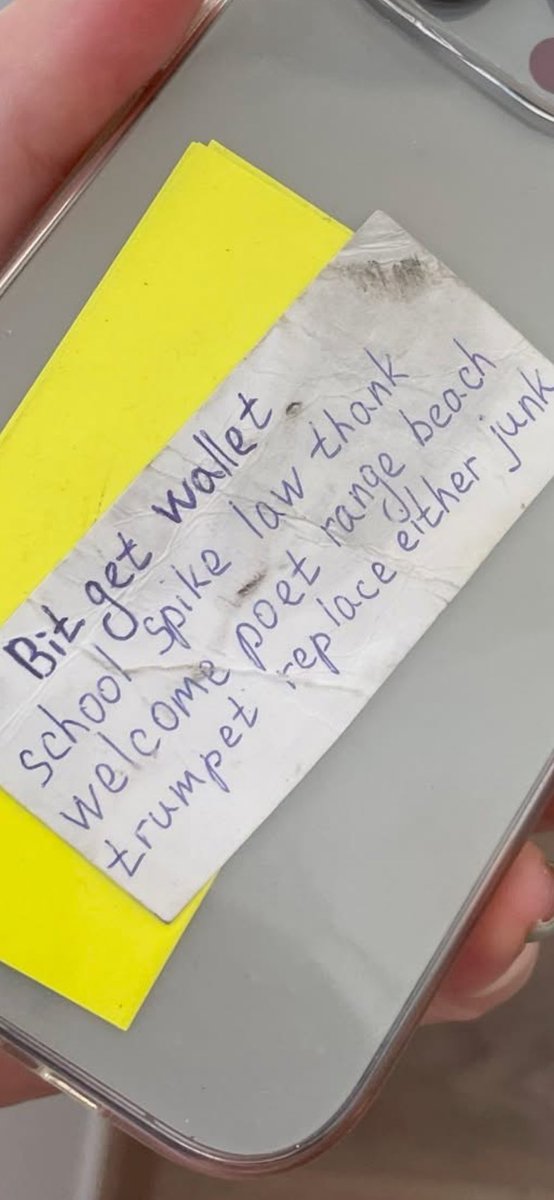 Bitget wallet
school spike law thank
welcome poet range beach
trumpet replace either junk